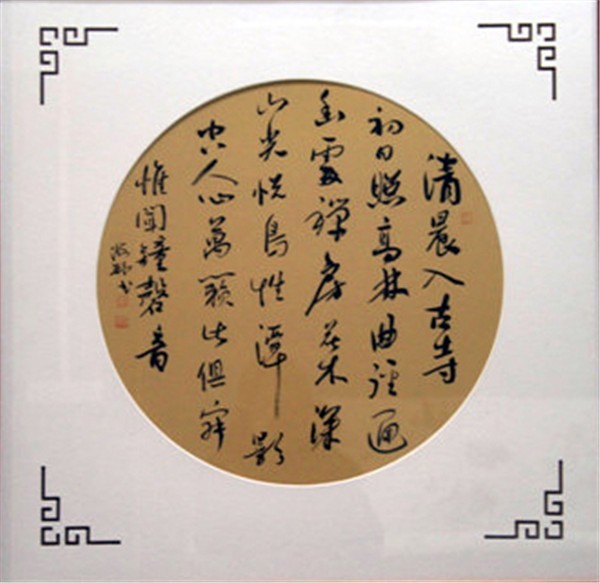 清晨入古寺
初日照高林曲径通
幽處禪房花木深
山光悦鳥性潭影
空人心萬籟此俱寂
惟聞鐘磬音
书